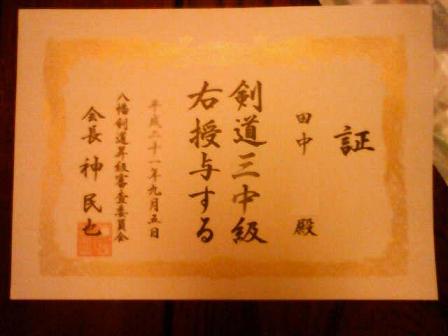 証
田中 殿
剣道三中級
右授与する
平成二十一年九月五日
八幡剣道昇級審査委員会
会長 神 民也